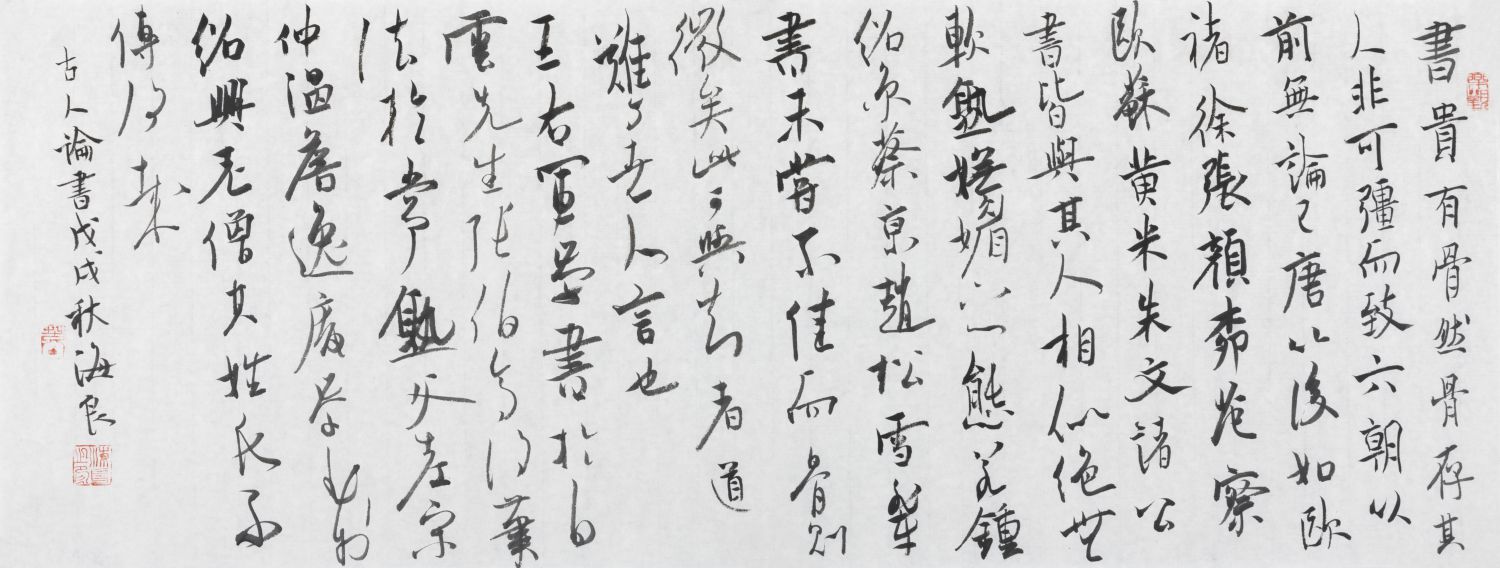 書貴有骨然骨存其
人非可彊而致六朝以
前無論已唐以後如歐
褚徐張顏柳范
歐蘇黃米朱文諸公
書皆與其人相似絕無
軟熟媚之態若鍾
紹京蔡京趙松雪輩
書未嘗不佳而骨則
微矣此可與知者道
難與世人言也
王右軍學書於白
雲先生張伯高得筆
法於常熟父老宋
仲溫詹逸學
紹興老僧其姓氏不
傳何哉
古人論書戊戌秋海良